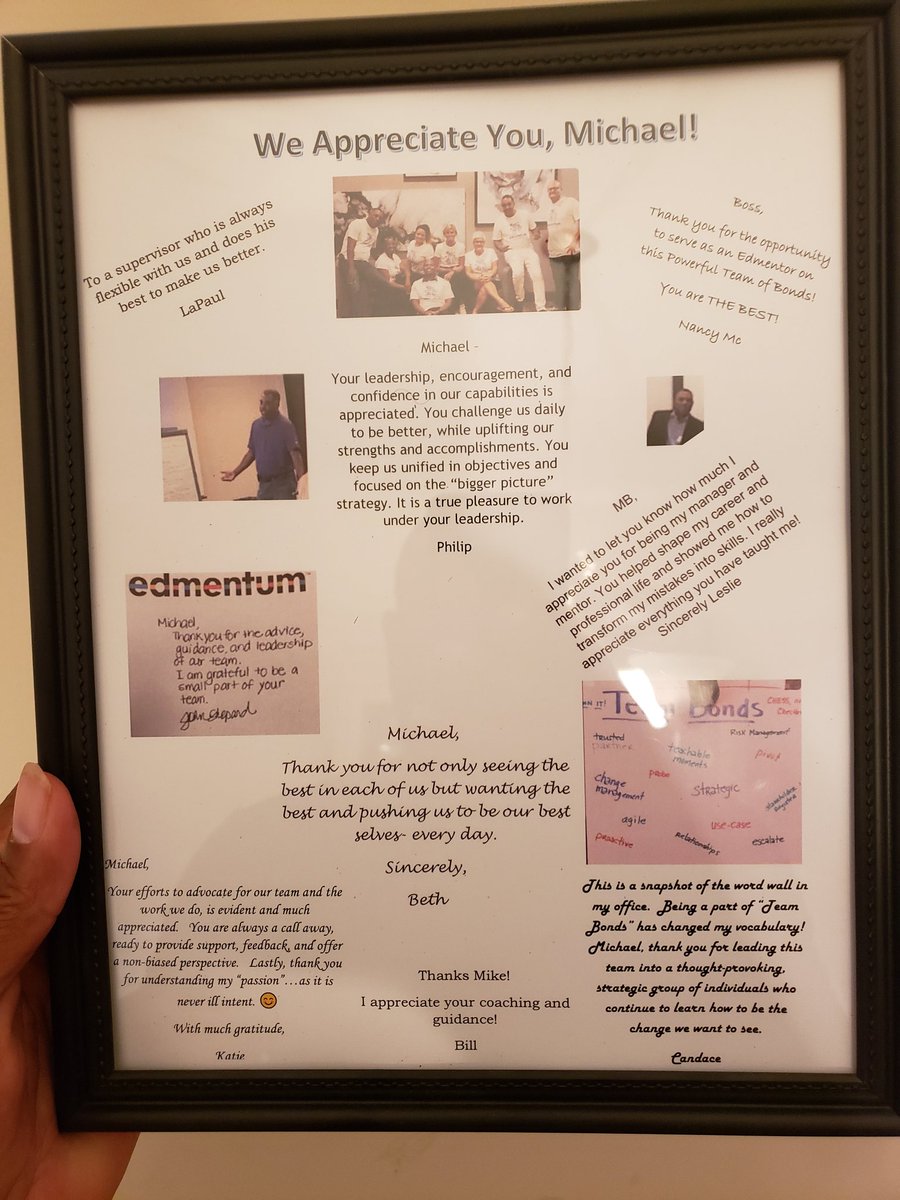 We Appreciate You, Michael!
To a supervisor who is always
flexible with us and does his
best to make us better.
LaPaul
Boss,
Thank you for the opportunity
to serve as an Edmentor on
this Powerful Team of Bonds!
You are THE BEST!
Nancy Mc
Michael -
Your leadership, encouragement, and
confidence in our capabilities is
appreciated. You challenge us daily
to be better, while uplifting our
strengths and accomplishments. You
keep us unified in objectives and
focused on the "bigger picture"
strategy. It is a true pleasure to work
under your leadership.
Philip
MB,
I wanted to let you know how much I
appreciate you for being my manager and
mentor. You helped shape my career and
professional life and showed me how to
transform my mistakes into skills. I really
appreciate everything you have taught me!
Sincerely Leslie
edmentum
Michael,
Thank you for the advice,
guidance, and leadership
of our team.
I am grateful to be a
small part of your
team.
John Shepard
Team Bonds
trusted
partner
teachable
moments
Risk Management
pivot
probe
change
management
strategic
agile
use-case
proactive
relationships
escalate
Michael,
Thank you for not only seeing the
best in each of us but wanting the
best and pushing us to be our best
selves- every day.
Sincerely,
Beth
Michael,
Your efforts to advocate for our team and the
work we do, is evident and much
appreciated. You are always a call away,
ready to provide support, feedback, and offer
a non-biased perspective. Lastly, thank you
for understanding my "passion"...as it is
never ill intent. 😊
With much gratitude,
Katie
Thanks Mike!
I appreciate your coaching and
guidance!
Bill
This is a snapshot of the word wall in
my office. Being a part of "Team
Bonds" has changed my vocabulary!
Michael, thank you for leading this
team into a thought-provoking,
strategic group of individuals who
continue to learn how to be the
change we want to see.
Candace